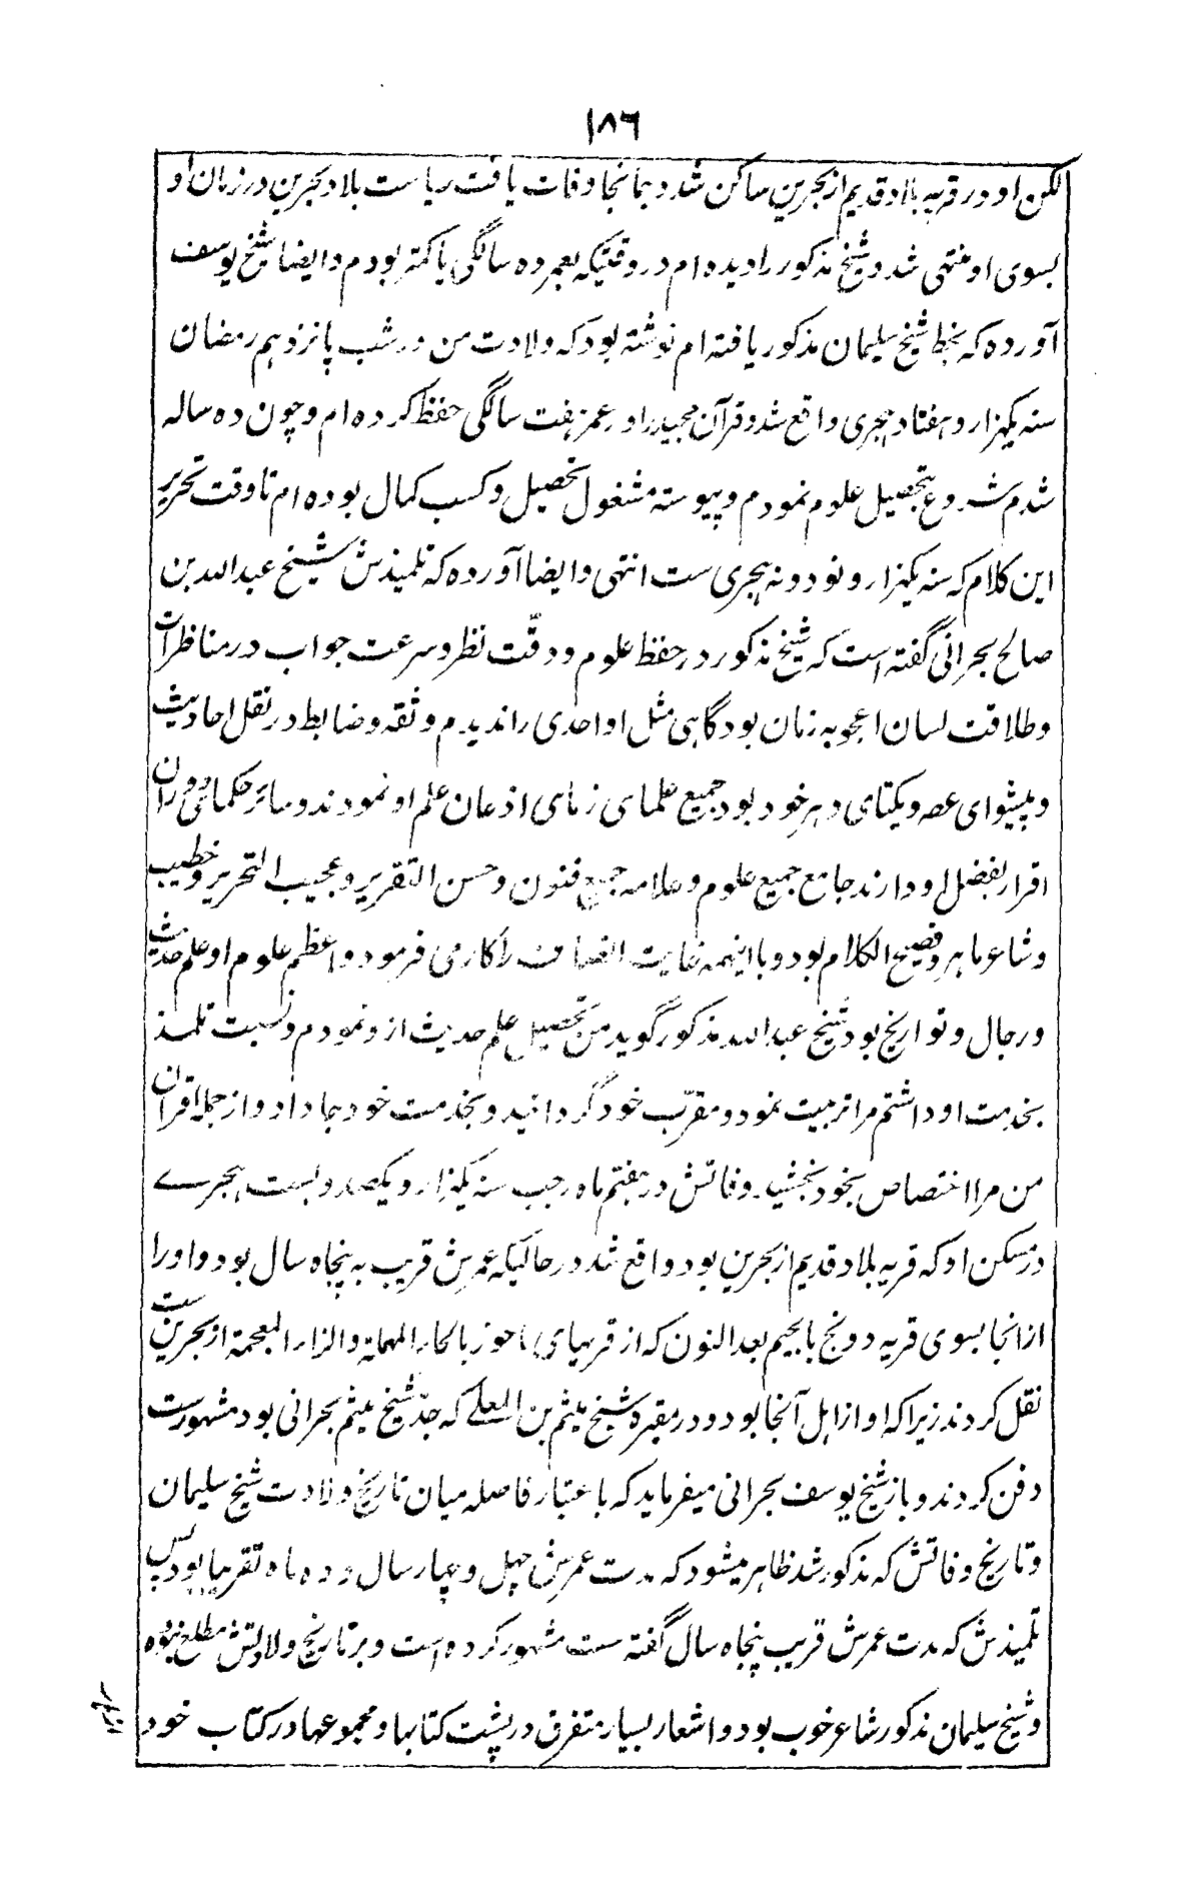 ۱۸۶
لکن او در قریه بلاد قدیم از بحرین ساکن شد و همانجا وفات یافت ریاست بلاد بحرین در زمان او
بسوی او منتهی شد و شیخ مذکور را دیده ام در وقتیکه بعمر ده سالگی یا کمتر بودم و ایضا شیخ یوسف
آورده که بخط شیخ سلیمان مذکور یافته ام نوشته بود که ولادت من در شب پانزدهم رمضان
سنه یکهزار و هفتاد هجری واقع شد و قرآن مجید را در عمر هفت سالگی حفظ کرده ام و چون ده ساله
شدم شروع بتحصیل علوم نمودم و پیوسته مشغول تحصیل و کسب کمال بوده ام تا وقت تحریر
این کلام که سنه یکهزار و نود و نه هجری ست انتهی و ایضا آورده که تلمیذش شیخ عبد الله بن
صالح بحرانی گفته است که شیخ مذکور در حفظ علوم و دقّت نظر و سرعت جواب در مناظرات
و طلاقت لسان اعجوبه زمان بود گاهی مثل او احدی را ندیدم و ثقه و ضابط در نقل احادیث
و پیشوای عصر و یکتای دهر خود بود جمیع علمای زمای اذعان علم او نمودند و سائر حکمائ دوران
اقرار بفضل او دارند جامع جمیع علوم و علامه جمیع فنون و حسن التقریر و عجیب التحریر و خطیب
و شاعر ماهر و فصیح الکلام بود و با اینهمه غایت انصاف را کار می فرمود و اعظم علوم او علم حدیث
و رجال و تواریخ بود شیخ عبد الله مذکور گوید من تحصیل علم حدیث ازو نمودم و نسبت تلمذ
بخدمت او داشتم مرا تربیت نمود و مقرّب خود گردانید و بخدمت خود جا داد و از جمله اقران
من مرا اختصاص بخود بخشید وفاتش در هفتم ماه رجب سنه یکهزار و یکصد و بست هجرے
در مسکن او که قریه بلاد قدیم از بحرین بود واقع شد در حالیکه عمرش قریب به پنجاه سال بود و او را
از انجا بسوی قریه دونج بالجیم بعد النون که از قریهای ماحوز بالحاء المهملة والزاء المعجمة از بحرین ست
نقل کردند زیرا که او از اهل آنجا بود و در مقبره شیخ میثم بن المعلے که جدّ شیخ میثم بحرانی بود مشهورست
دفن کردند و باز شیخ یوسف بحرانی میفرماید که باعتبار فاصله میان تاریخ ولادت شیخ سلیمان
و تاریخ وفاتش که مذکور شد ظاهر میشود که مدت عمرش چهل و چهار سال و ده ماه تقریبا بود پس
تلمیذش که مدت عمرش قریب پنجاه سال گفته ست مشهور کرده است و بر تاریخ ولادتش مطلع نبوده
و شیخ سلیمان مذکور شاعر خوب بود و اشعار بسیار متفرق در پشت کتابها و مجموعها در کتاب خود